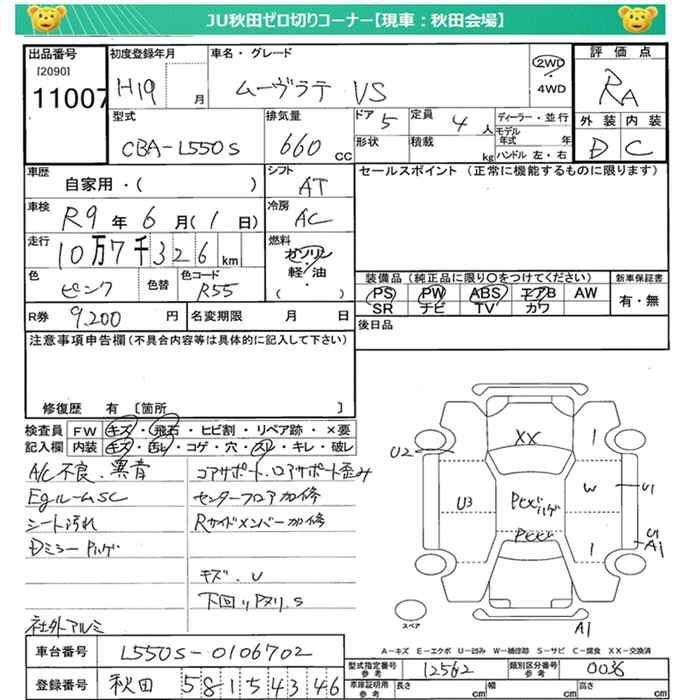 JU秋田ゼロ切りコーナー【現車：秋田会場】
出品番号
[2090]
11007
初度登録年月
H19 月
車名・グレード
ムーヴラテ VS
2WD
・
4WD
評価点
RA
型式
CBA-L550S
排気量
660 cc
ドア 5
定員 4 人
形状
積載 kg
ディーラー・並行
モデル年式 年
ハンドル 左・右
外装 内装
D C
車歴
自家用・( )
シフト
AT
車検
R9年6月(1日)
冷房
AC
走行
10万7千326km
燃料
ガソリン
軽・油
( )
色
ピンク
色替
色コード
R55
セールスポイント (正常に機能するものに限ります)
装備品 (純正品に限り○をつけてください)
PS PW ABS エアB AW
SR ナビ TV カワ
新車保証書
有・無
後日品
R券 9,200 円
名変期限 月 日
注意事項申告欄(不具合内容等は具体的に記入して下さい)
修復歴 有 [箇所 ]
検査員記入欄
FW キズ・飛石・ヒビ割・リペア跡・×要
内装 キズ・汚レ・コゲ・穴・スレ・キレ・破レ
A/C不良.異音
EgルームSC
シート汚れ
Dミラーハゲ
社外アルミ
コアサポート.ロアサポート歪み
センターフロア加修
Rサイドメンバー加修
キズ.U
下回りPヌリ.S
XX
U2
U3
W
U1
U1
A1
A1
スペア
A-キズ E-エクボ U-凹み W-補修跡 S-サビ C-腐食 XX-交換済
車台番号 L550S-0106702
登録番号 秋田 581 そ 4346
型式指定番号 参考 12562
類別区分番号 参考 0036
車庫証明用 参考 長さ cm 幅 cm 高さ cm